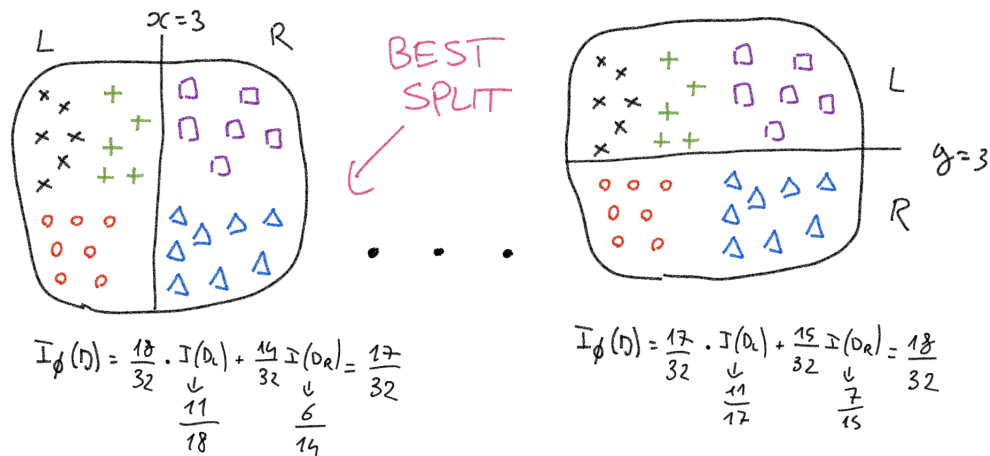 x=3
L R
BEST
SPLIT
L
y=3
R
I_ϕ(D) = 18/32 · I(D_L) + 14/32 I(D_R) = 17/32
↓ ↓
11/18 6/14
I_ϕ(D) = 17/32 · I(D_L) + 15/32 I(D_R) = 18/32
↓ ↓
11/17 7/15